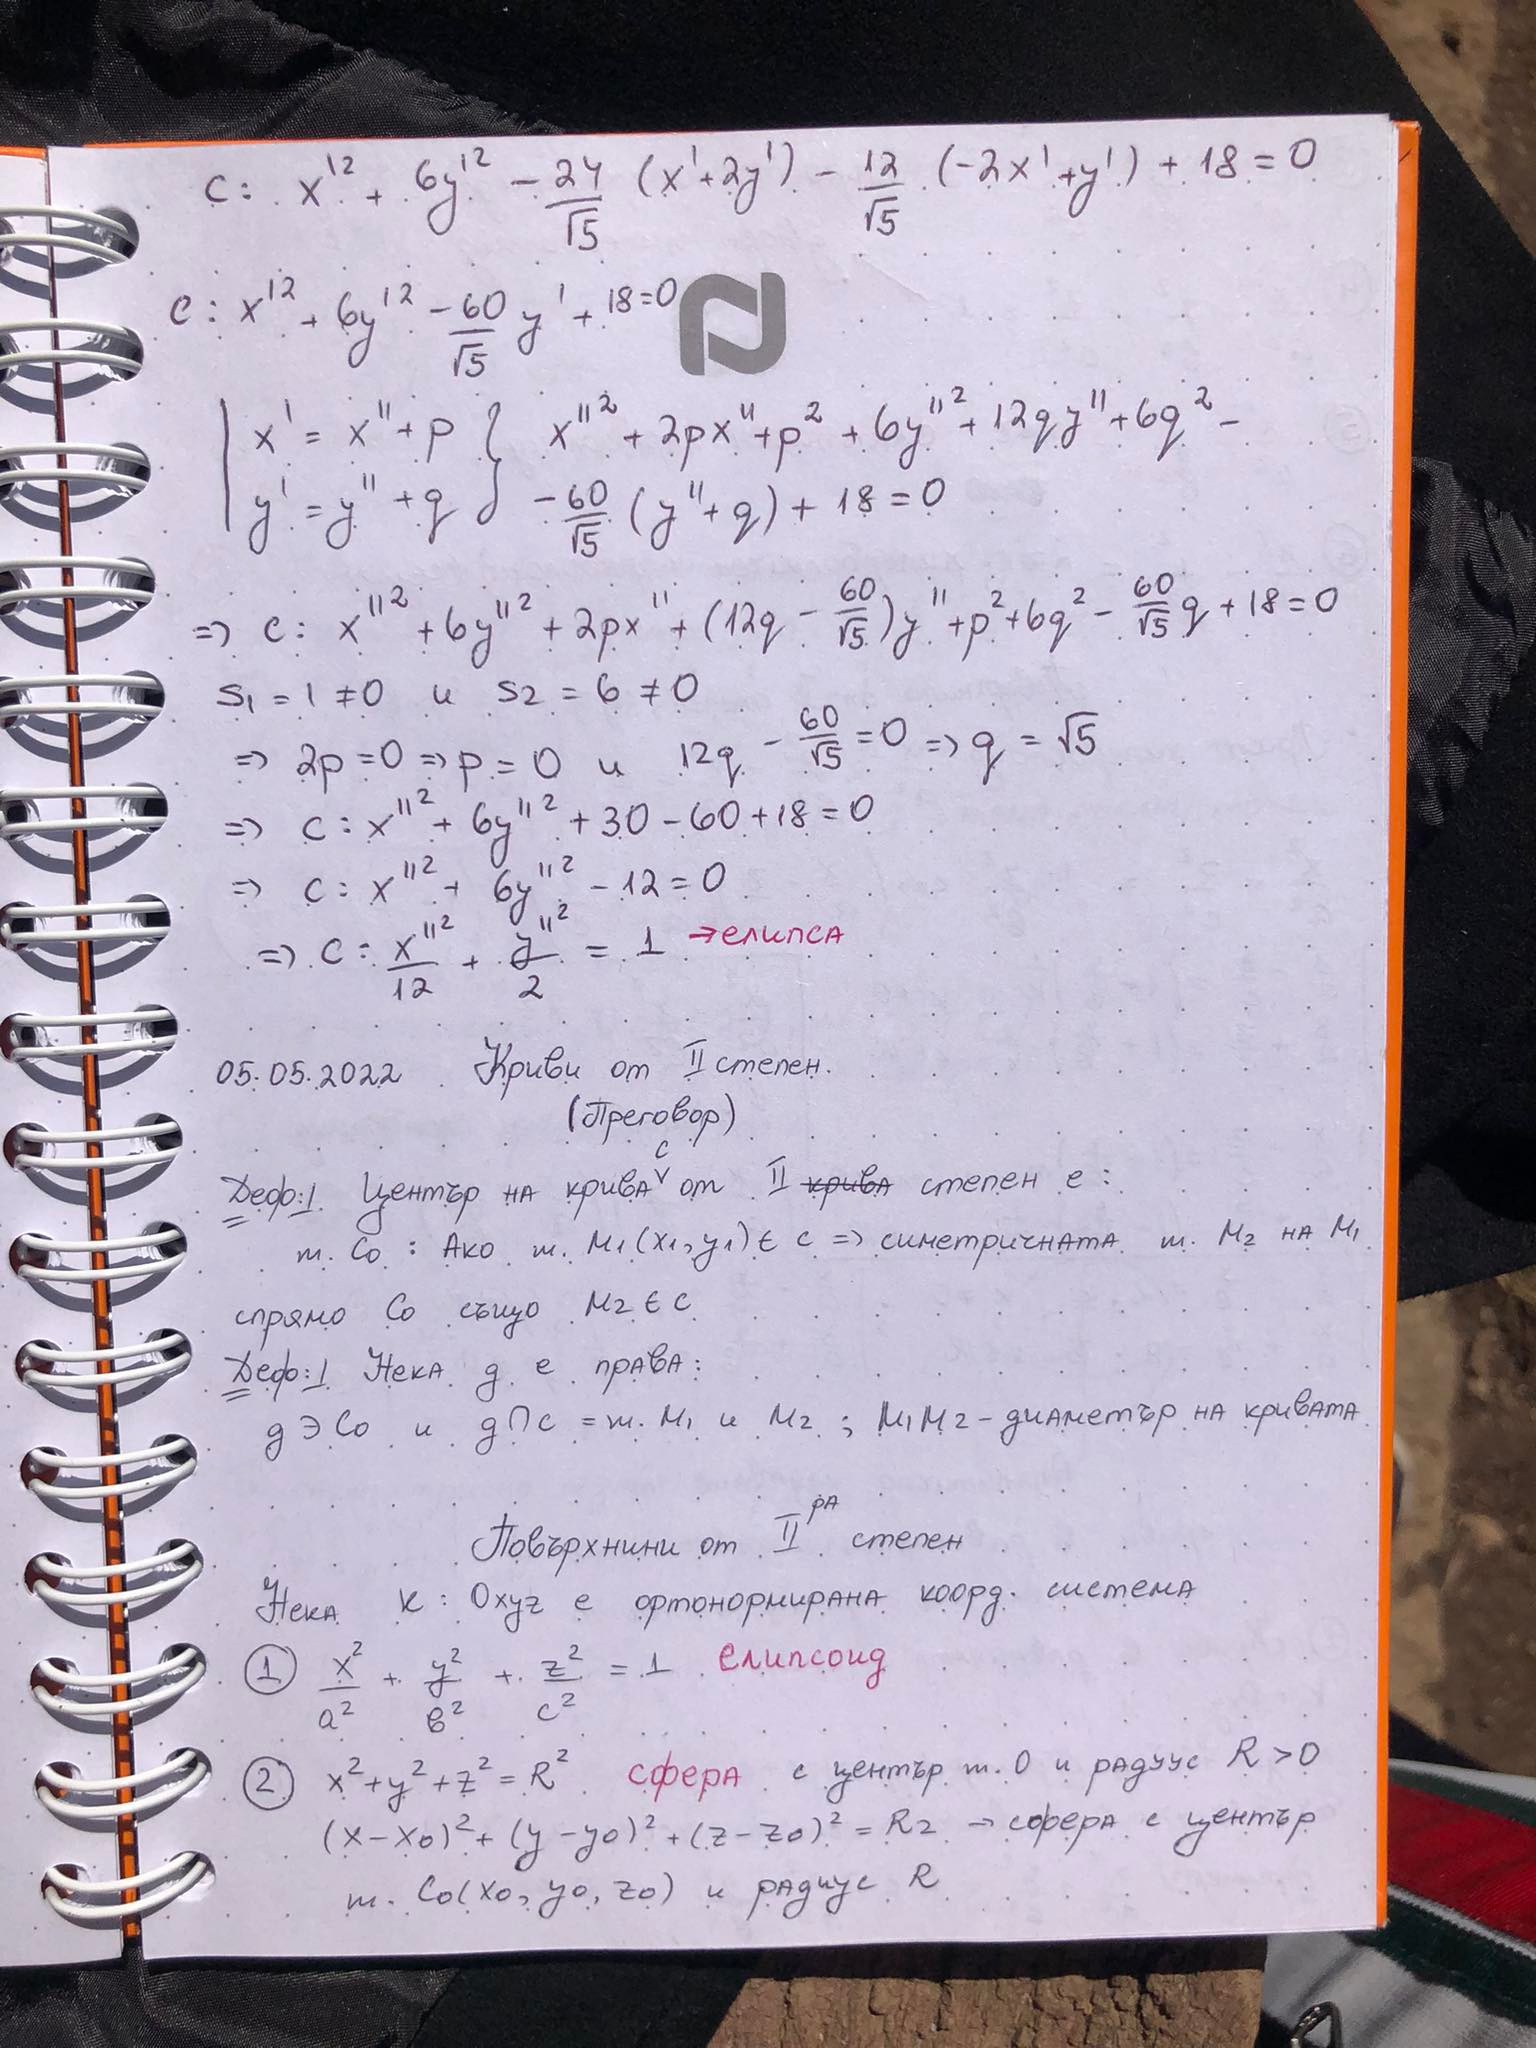 c: x'² + 6y'² - 24/√5 (x'+2y') - 12/√5 (-2x'+y') + 18 = 0
c: x'² + 6y'² - 60/√5 y' + 18 = 0
| x' = x'' + p } x''² + 2px'' + p² + 6y''² + 12qy'' + 6q² -
| y' = y'' + q } - 60/√5 (y''+q) + 18 = 0
=> c: x''² + 6y''² + 2px'' + (12q - 60/√5)y'' + p² + 6q² - 60/√5 q + 18 = 0
S1 = 1 ≠ 0 и S2 = 6 ≠ 0
=> 2p = 0 => p = 0 и 12q - 60/√5 = 0 => q = √5
=> c: x''² + 6y''² + 30 - 60 + 18 = 0
=> c: x''² + 6y''² - 12 = 0
=> c: x''²/12 + y''²/2 = 1 → елипса
05.05.2022 Криви от II степен.
(Преговор)
Деф:1 Център на крива c от II крива степен е:
т. C0 : Ако т. M1(x1, y1) ∈ c => симетричната т. M2 на M1
спрямо C0 също M2 ∈ c
Деф:1 Нека g е права:
g ∋ C0 и g ∩ c = т. M1 и M2 ; M1M2 - диаметър на кривата
Повърхнини от II ра степен
Нека K: Oxyz е ортонормирана коорд. система
① x²/a² + y²/b² + z²/c² = 1 Елипсоид
② x² + y² + z² = R² сфера с център т. O и радиус R > 0
(x - x0)² + (y - y0)² + (z - z0)² = R2 → сфера с център
т. C0(x0, y0, z0) и радиус R